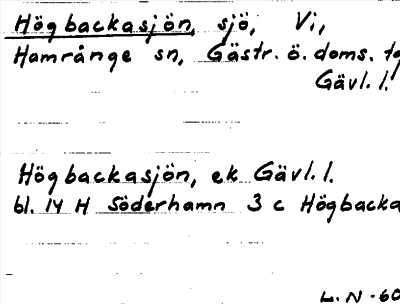 Högbackasjön, sjö, Vi,
Hamrånge sn, Gästr. ö. doms. tg
Gävl. l.
Högbackasjön, ek Gävl. l.
bl. 14 H Söderhamn 3 c Högbacka
L. N -60